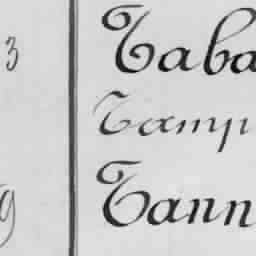 3 Taba
Tamp
9 Tann